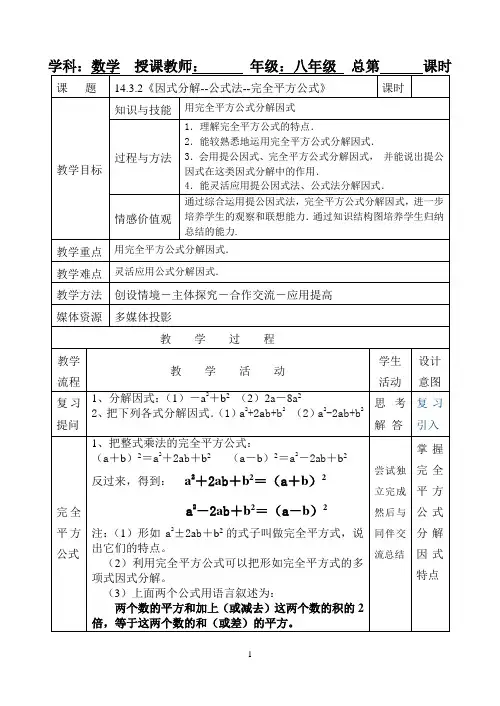 学科：数学 授课教师： 年级：八年级 总第 课时
课 题 14.3.2《因式分解--公式法--完全平方公式》 课时
教学目标
知识与技能 用完全平方公式分解因式
过程与方法
1．理解完全平方公式的特点．
2．能较熟悉地运用完全平方公式分解因式．
3．会用提公因式、完全平方公式分解因式， 并能说出提公
因式在这类因式分解中的作用．
4．能灵活应用提公因式法、公式法分解因式．
情感价值观
通过综合运用提公因式法，完全平方公式分解因式，进一步
培养学生的观察和联想能力．通过知识结构图培养学生归纳
总结的能力．
教学重点 用完全平方公式分解因式．
教学难点 灵活应用公式分解因式．
教学方法 创设情境－主体探究－合作交流－应用提高
媒体资源 多媒体投影
教 学 过 程
教学
流程
教 学 活 动
学生
活动
设计
意图
复习
提问
1、分解因式：（1）－a²＋b² （2）2a－8a²
2、把下列各式分解因式.（1）a²+2ab+b² （2）a²-2ab+b²
思 考
解 答
复 习
引入
完全
平方
公式
1、把整式乘法的完全平方公式：
（a＋b）²＝a²＋2ab＋b² （a－b）²＝a²－2ab＋b²
反过来，得到： a²＋2ab＋b²＝（a＋b）²
a²－2ab＋b²＝（a－b）²
注：（1）形如 a²±2ab＋b² 的式子叫做完全平方式，说
出它们的特点。
（2）利用完全平方公式可以把形如完全平方式的多
项式因式分解。
（3）上面两个公式用语言叙述为：
两个数的平方和加上（或减去）这两个数的积的 2
倍，等于这两个数的和（或差）的平方。
尝试独
立完成
然后与
同伴交
流总结
掌 握
完 全
平 方
公 式
分 解
因 式
特点
1